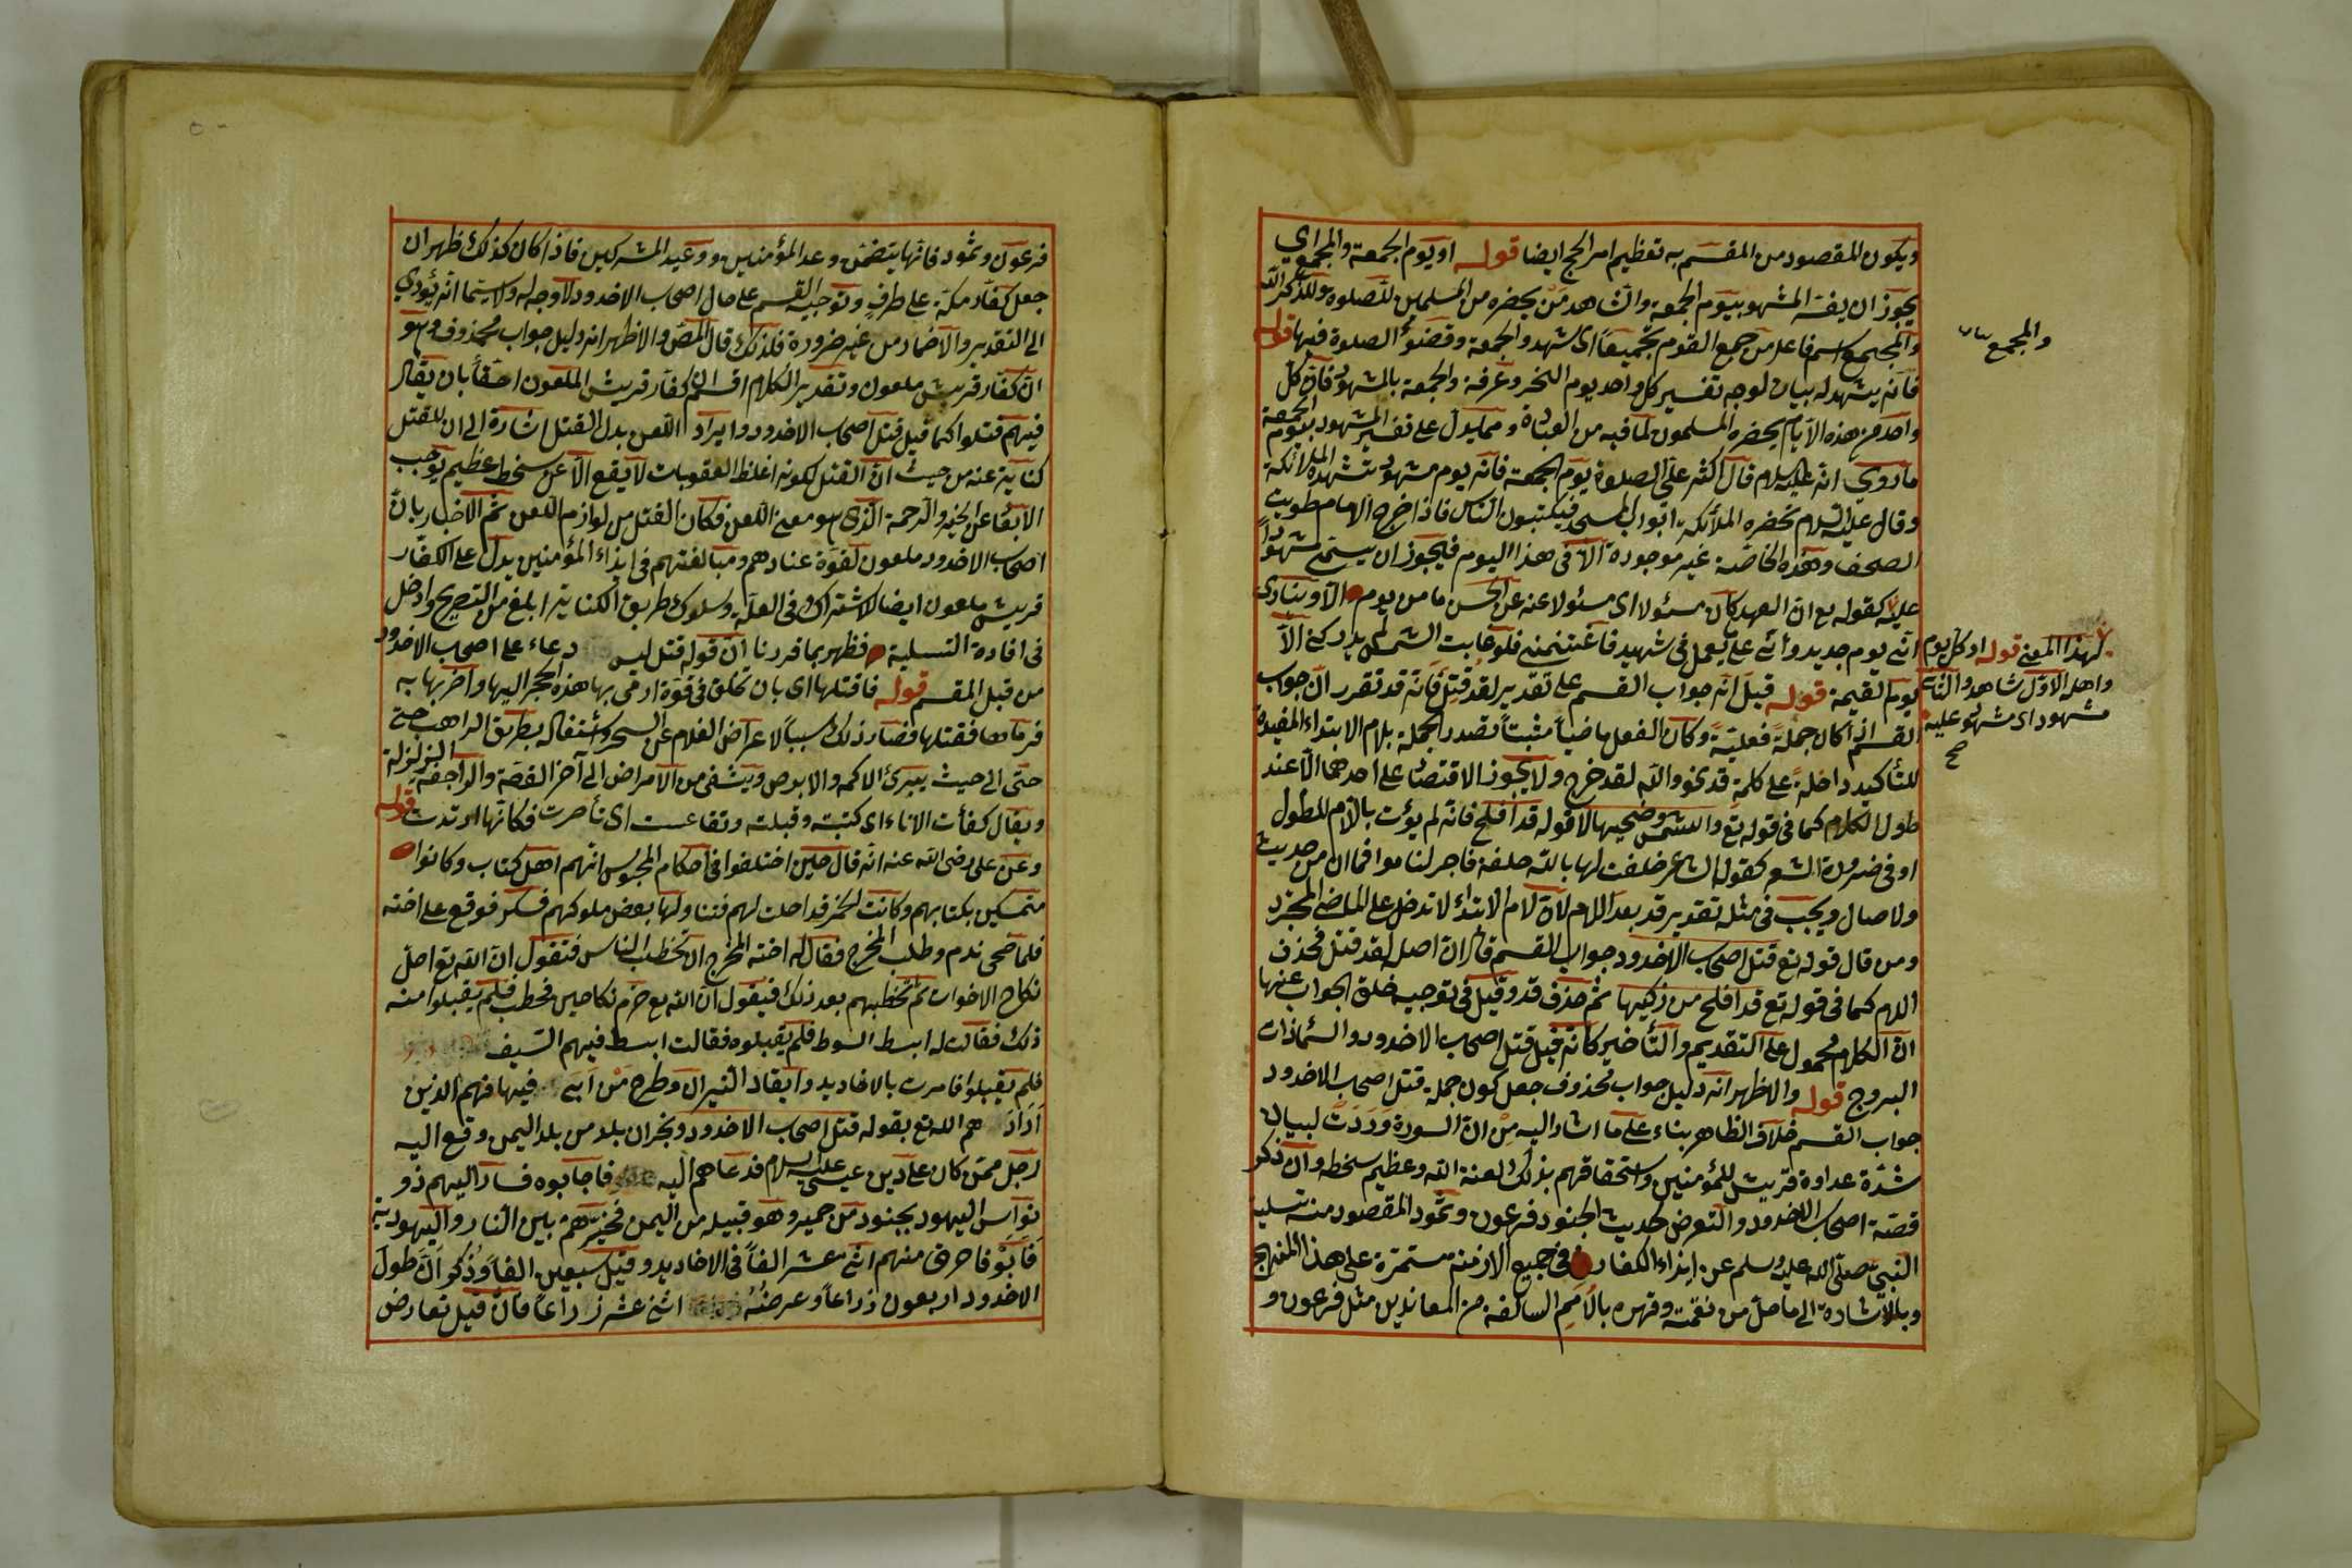 ويكون المقصود من المقسم به تعظيم امر الحج ايضا قوله او يوم الجمعة والمجمع اي
يجوز ان يفسر المشهود بيوم الجمعة والشاهد من يحضره من المسلمين للصلوة ولذكر الله
والمجمع اسم فاعل من جمع القوم تجميعا اى شهدوا الجمعة وقضوا الصلوة فيها قوله
فانه يشهد له بيان لوجه تفسير كل واحد يوم النحر وعرفة والجمعة بالمشهود فان كل
واحد من هذه الايام يحضره المسلمون لما فيه من العبادة ومما يدل على تفسير المشهود بيوم الجمعة
ما روي انه عليه السلام قال اكثر على الصلوة يوم الجمعة فانه يوم مشهود تشهده الملائكة
وقال عليه السلام تحضره الملائكة ابواب المسجد فيكتبون الناس فاذا خرج الامام طويت
الصحف وهذه الخاصة غير موجودة الا فى هذا اليوم فيجوز ان يسمى مشهودا
عليه كقوله تع ان العهد كان مسئولا اى مسئولا عنه عن الحسن ما من يوم الا وينادى
انى يوم جديد وانى على ما يعمل فى شهيد فاغتنمنى فلو غابت الشمس لم يدركنى الا
يوم القيمة قوله قيل انه جواب القسم على تقدير لقد قتل فانه قد تقرر ان جواب
القسم اذا كان جملة فعلية وكان الفعل ماضيا مثبتا تصدر الجملة بلام الابتداء المفيدة
للتأكيد داخلة على كلمة قد نحو والله لقد خرج ولا يجوز الاقتصار على احدهما الا عند
طول الكلام كما فى قوله تع والشمس وضحيها الا قوله قد افلح فانه لم يؤت باللام للطول
او فى ضرورة الشعر كقول الشاعر حلفت لها بالله حلفة فاجر لناموا فما ان من حديث
ولا صال ويجب فى مثله تقدير قد بعد اللام لان لام الابتداء لا تدخل على الماضى المجرد
ومن قال قوله تع قتل اصحاب الاخدود جواب القسم قال ان اصله لقد قتل فحذف
اللام كما فى قوله تع قد افلح من زكيها ثم حذف قد وقيل فى توجيه خلق الجواب عنها
ان الكلام محمول على التقديم والتأخير كانه قيل قتل اصحاب الاخدود والسماء ذات
البروج قوله والاظهر انه دليل جواب محذوف جعل كون جملة قتل اصحاب الاخدود
جواب القسم خلاف الظاهر بناء على ما اشار اليه من ان السورة وردت لبيان
شدة عداوة قريش للمؤمنين واستحقاقهم بذلك لعنة الله وعظيم سخطه وان ذكر
قصة اصحاب الاخدود والتعرض لحديث الجنود فرعون وثمود المقصود منه تسلية
النبي صلى الله عليه وسلم عن ايذاء الكفار فى جميع الازمنة مستمرة على هذا المنهج
وبالاشارة الى ما حل من نقمته وقهره بالامم السالفة من المعاندين مثل فرعون و
والمجمع
لهذا المعنى قوله او كل يوم
واهله الاول شاهد والثانى
مشهود اى مشهود عليه
صح
فرعون وثمود فانها يتضمن وعد المؤمنين ووعيد المشركين فاذا كان كذلك ظهر ان
جعل كفار مكة على طرف وتوجيه القسم على حال اصحاب الاخدود لا وجه له ولا سيما انه يؤدي
الى التقدير والاضمار من غير ضرورة فلذلك قال المص والاظهر انه دليل جواب محذوف وهو
ان كفار قريش ملعون وتقدير الكلام اقسم ان كفار قريش الملعون احقا بان يقال
فيهم قتلوا كما قيل قتل اصحاب الاخدود وايراد اللعن بدل القتل اشارة الى ان القتل
كناية عنه من حيث ان القتل لكونه اغلظ العقوبات لا يقع الا عن سخط عظيم يوجب
الابعاد عن الخير والرحمة الذى هو معنى اللعن فكان القتل من لوازم اللعن ثم الاخبار بان
اصحاب الاخدود ملعون لقوة عنادهم ومبالغتهم فى ايذاء المؤمنين يدل على الكفار
قريش ملعون ايضا للاشتراك فى العلة وسلوك طريق الكناية ابلغ من التصريح وادخل
فى افادة التسلية فظهر بما قررنا ان قوله قتل ليس دعاء على اصحاب الاخدود
من قبل المقسم قوله فاقتلها اى بان تخلق فى قوة ارمى بها هذه الحجر اليها واضربها به
فرماها فقتلها فصار ذلك سببا لاعراض الغلام عن السحر واشتغاله بطريق الراهب حتى
حتى الى حيث يبرئ الاكمه والابرص ويشفى من الامراض الى آخر القصة والراجفة الزلزلة
ويقال كفأت الاناء اى كببته وقبلته وتقاعست اى تأخرت فكانها ارتدت قوله
وعن على رضى الله عنه انه قال حين اختلفوا فى احكام المجوس انهم اهل كتاب وكانوا
متمسكين بكتابهم وكانت الخمر قد احلت لهم فتناولها بعض ملوكهم فسكر فوقع على اخته
فلما صحى ندم وطلب المخرج فقال له اخته المخرج ان تخطب الناس فتقول ان الله تع احل
نكاح الاخوات ثم تخطبهم بعد ذلك فتقول ان الله تع حرم نكاحهن فخطب فلم يقبلوا منه
ذلك فقالت له ابسط السوط فلم يقبلوه فقالت ابسط فيهم السيف
فلم يقبلوا فامرت بالاخاديد وايقاد النيران وطرح من ابى فيها فهم الذين
اراد هم الله تع بقوله قتل اصحاب الاخدود ونجران بلد من بلد اليمن وقع اليه
رجل ممن كان على دين عيسى عليه السلام فدعاهم اليه فاجابوه فسار اليهم ذو
نواس اليهود بجنود من حمير وهو قبيله من اليمن فخيرهم بين النار واليهودية
فابوا فاحرق منهم اثنى عشر الفا فى الاخاديد وقيل سبعين الفا وذكر ان طول
الاخدود اربعون ذراعا وعرضه اثنى عشر ذراعا فان قيل تعارض